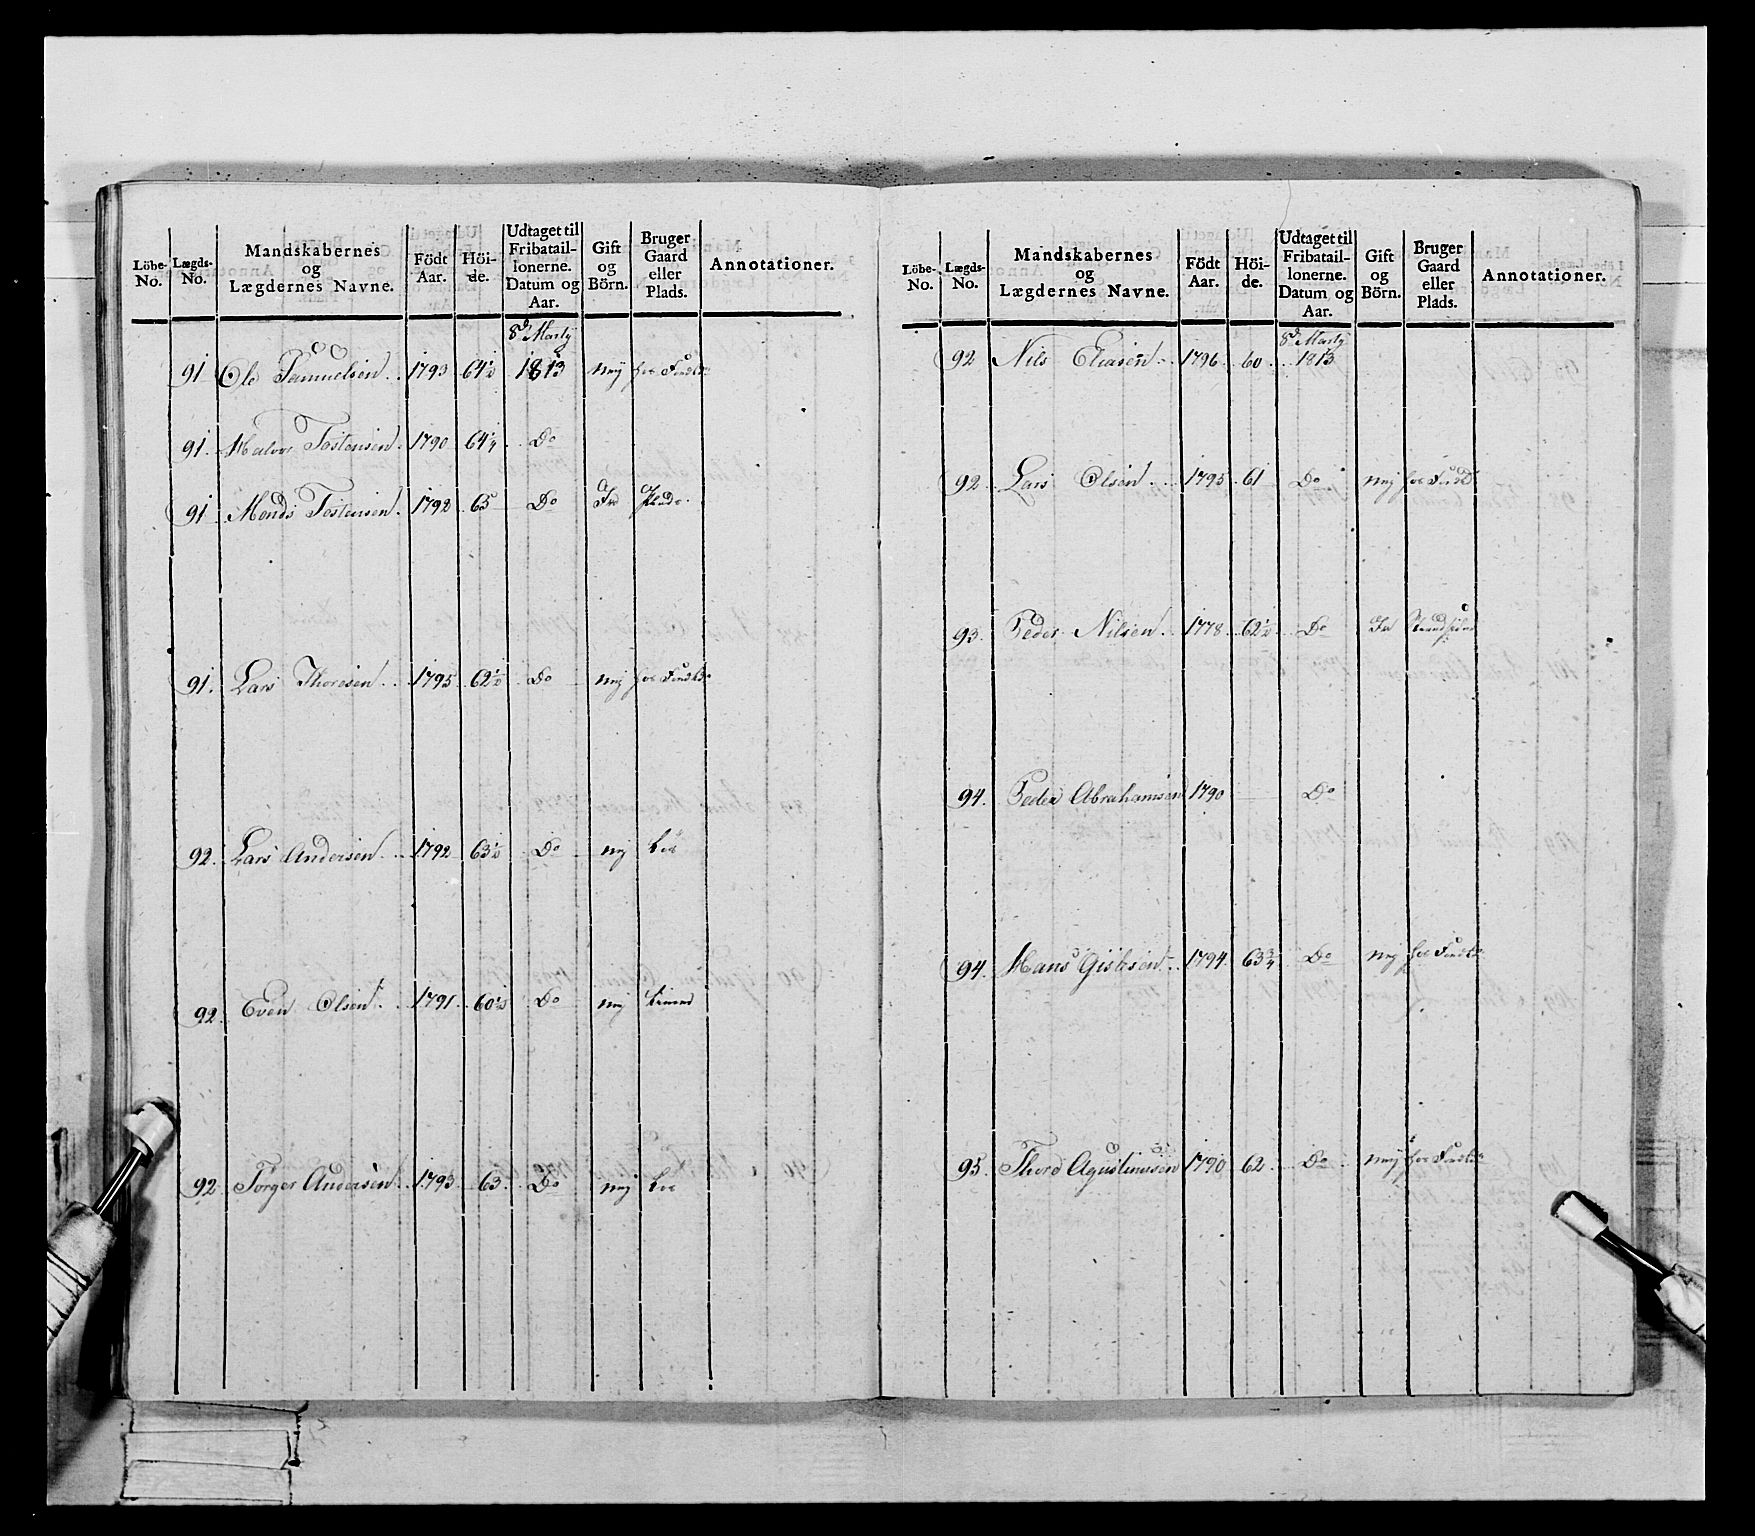 Löbe-No. Lægds-No. Mandskabernes og Lægdernes Navne. Födt Aar. Höi-de. Udtaget til Fribatail-lonerne. Datum og Aar. Gift og Börn. Bruger Gaard eller Plads. Annotationer.
8de Marty
91 Ole Samuelsen 1793 64½ 1813 nej
91. Halvor Tostensen. 1790 64¼ Do
91 Monds Tostensen. 1792 65 Do
91. Lars Thoresen 1795 62½ Do nej
92. Lars Andersen 1792 63½ Do nej
92. Even Olsen 1791 60½ Do nej
92 Torger Andersen 1793 63. Do nej
Löbe-No. Lægds-No. Mandskabernes og Lægdernes Navne. Födt Aar. Höi-de. Udtaget til Fribatail-lonerne. Datum og Aar. Gift og Börn. Bruger Gaard eller Plads. Annotationer.
8de Marty
92 Nils Eliasen 1796 60 1813
92. Lars Olsen 1795 61 Do nej
93. Peder Nilsen 1778 62½ Do
94. Peder Abrahamsen 1790 Do
94. Hans Gislesen 1794 63¾ Do nej
95. Thord Agustinusen 1790 62 Do nej